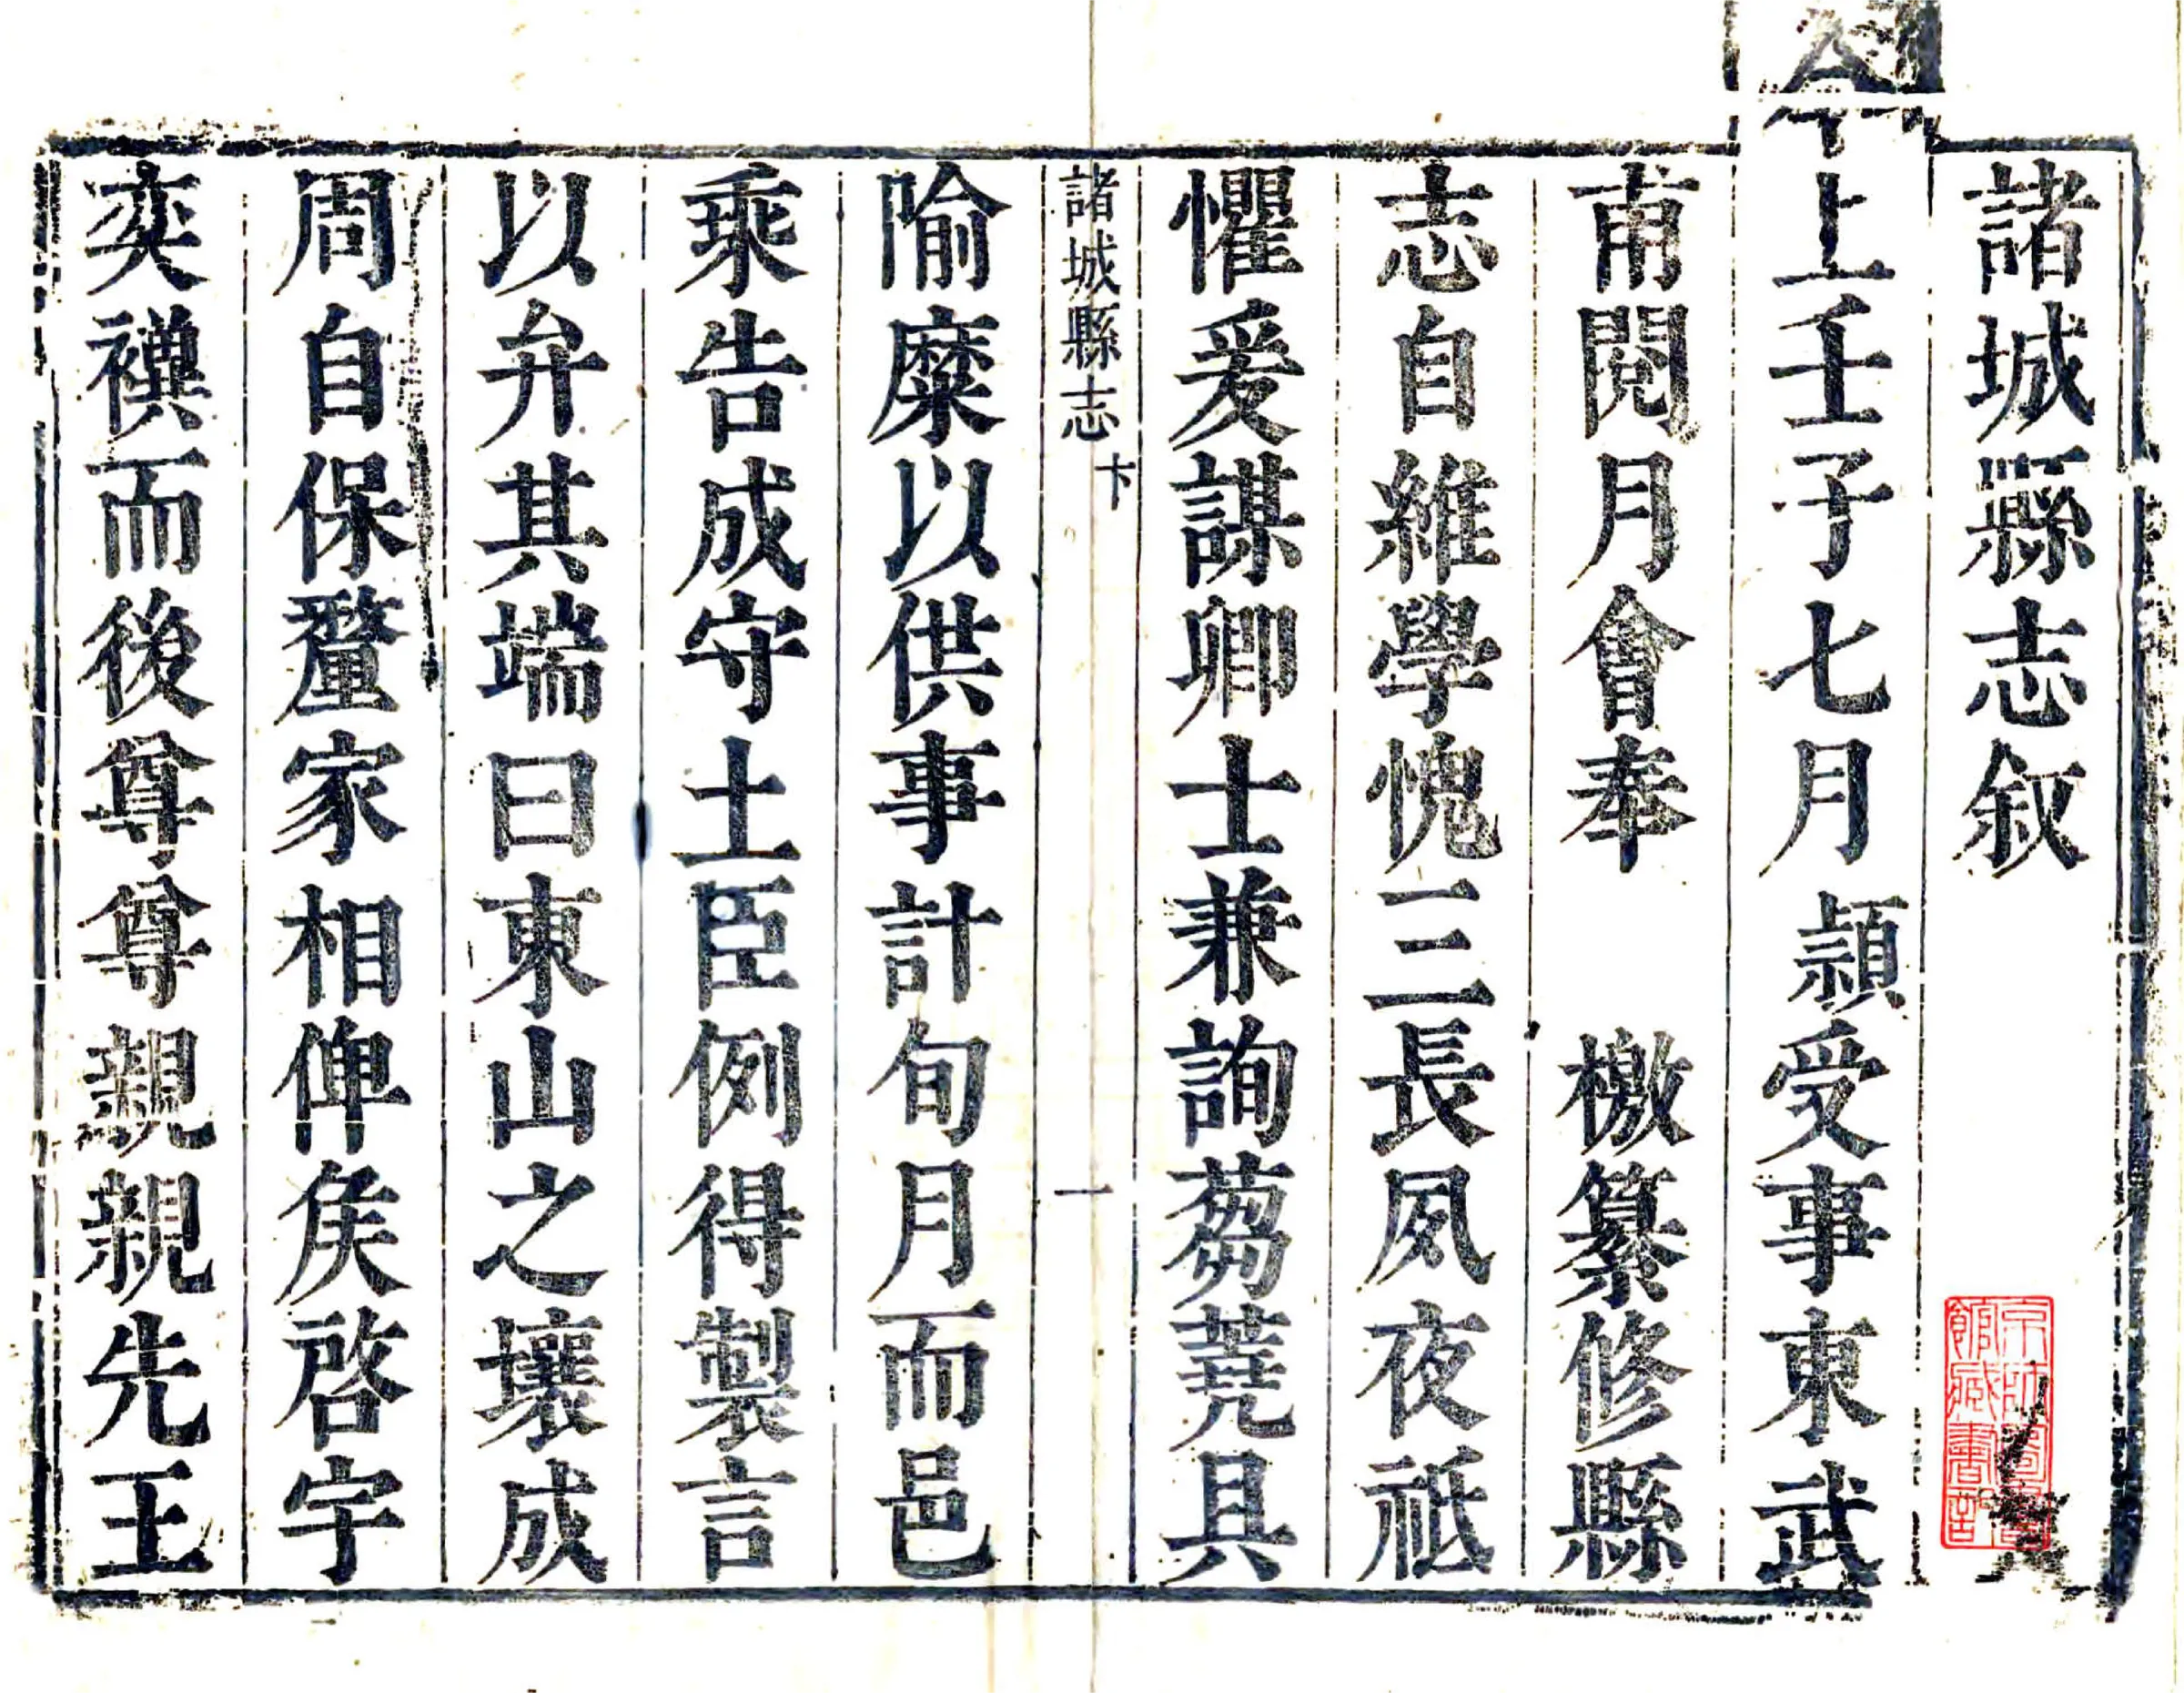 諸城縣志叙
今
上壬子七月頴受事東武
甫閱月會奉 檄纂修縣
志自維學愧三長夙夜祗
懼爰謀卿士兼詢蒭蕘具
諸城縣志 卞 一
隃糜以供事計旬月而邑
乘告成守土臣例得製言
以弁其端曰東山之壤成
周自保釐家相俾矦啓宇
奕禩而後尊尊親親先王
京師圖書館藏書記